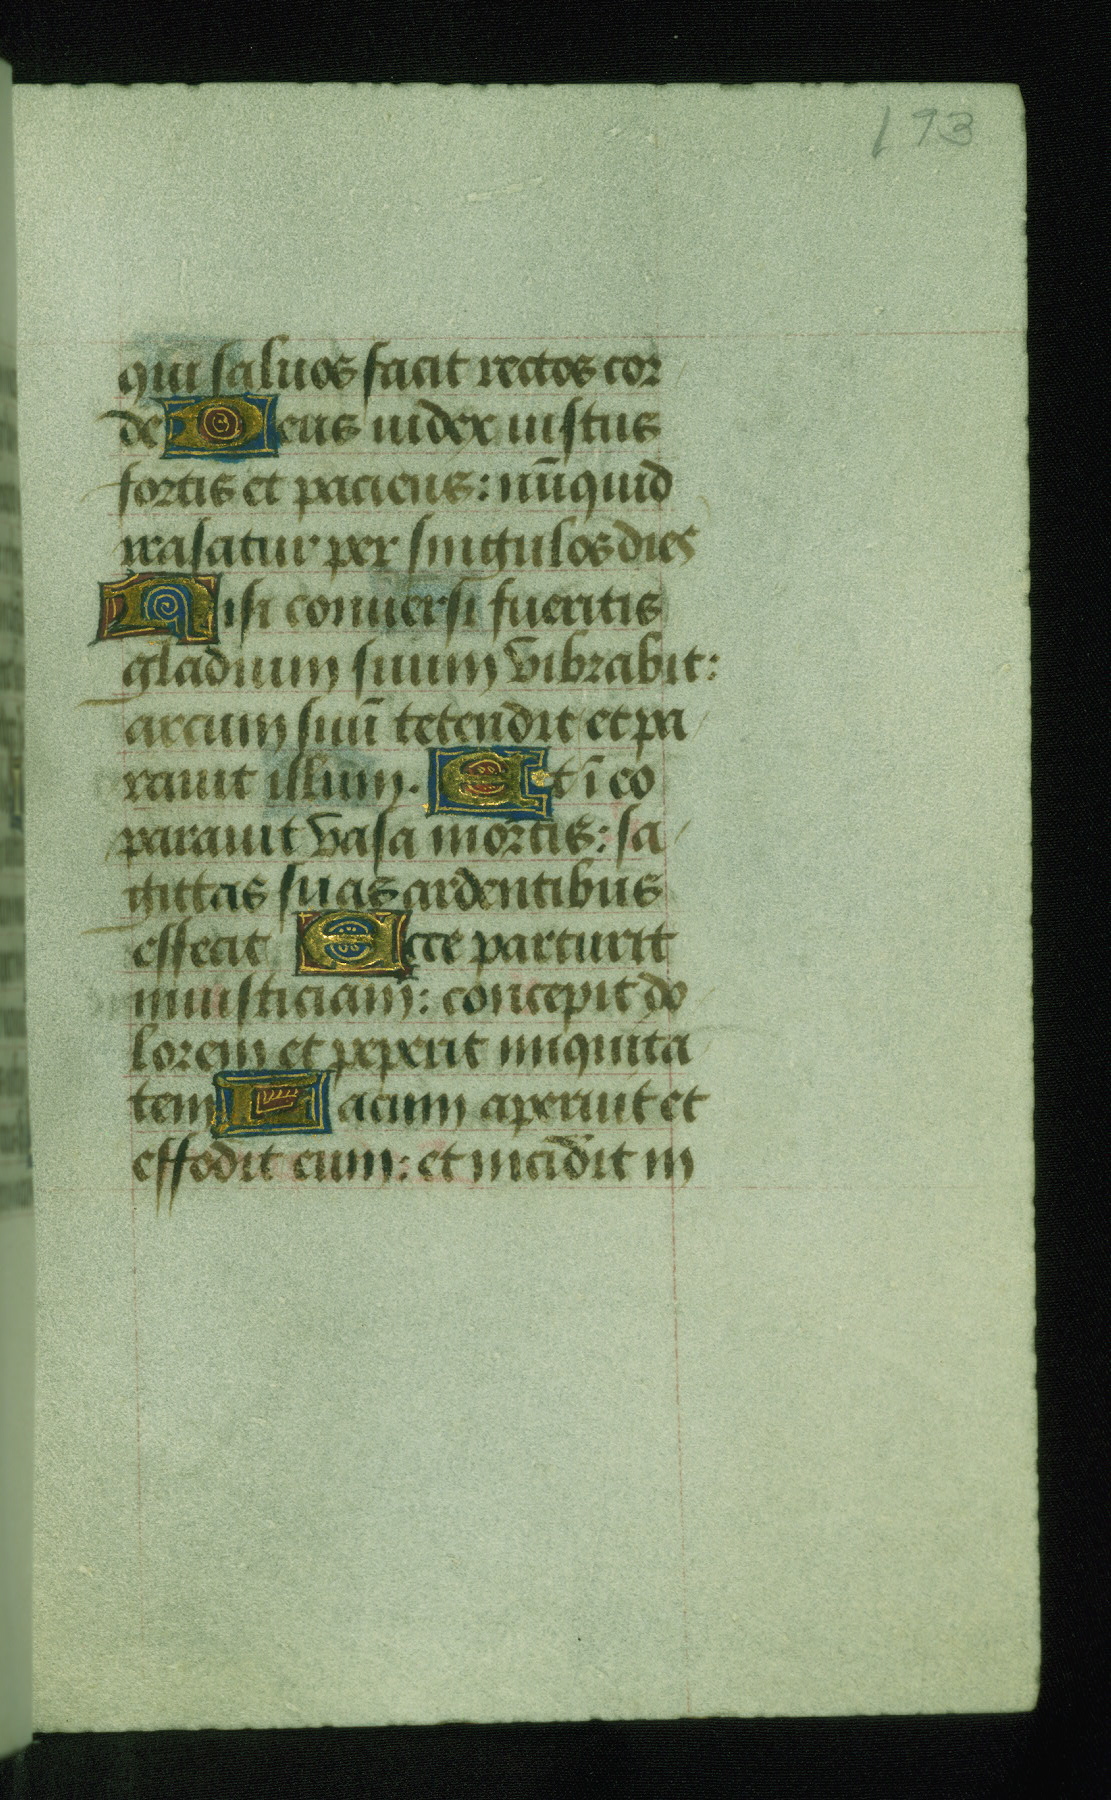 193
qui saluos facit rectos cor
de Deus iudex iustus
fortis et paciens: nūquid
irasatur per singulos dies
Nisi conuersi fueritis
gladium suum vibrabit:
arcum suū tetendit et pa
rauit illum. Et ī eo
parauit vasa mortis: sa
gittas suas ardentibus
effecit Ecce parturit
iniusticiam: concepit do
lorem et peperit iniquita
tem Lacum aperuit et
effodit eum: et incidit in